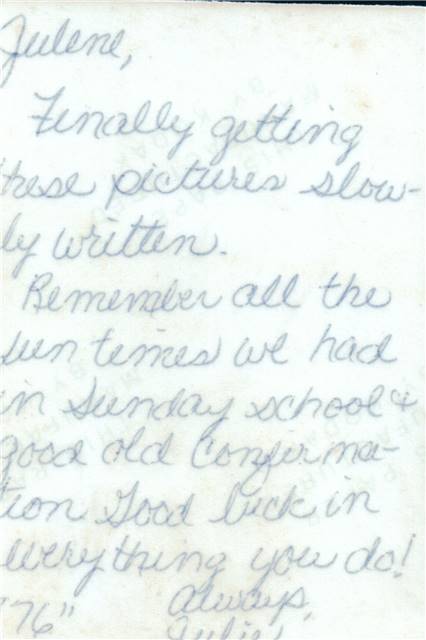 Julene,
Finally getting
these pictures slow-
ly written.
Remember all the
fun times we had
in Sunday school &
good old Confirma-
tion Good luck in
everything you do!
"76" Always,
Julie